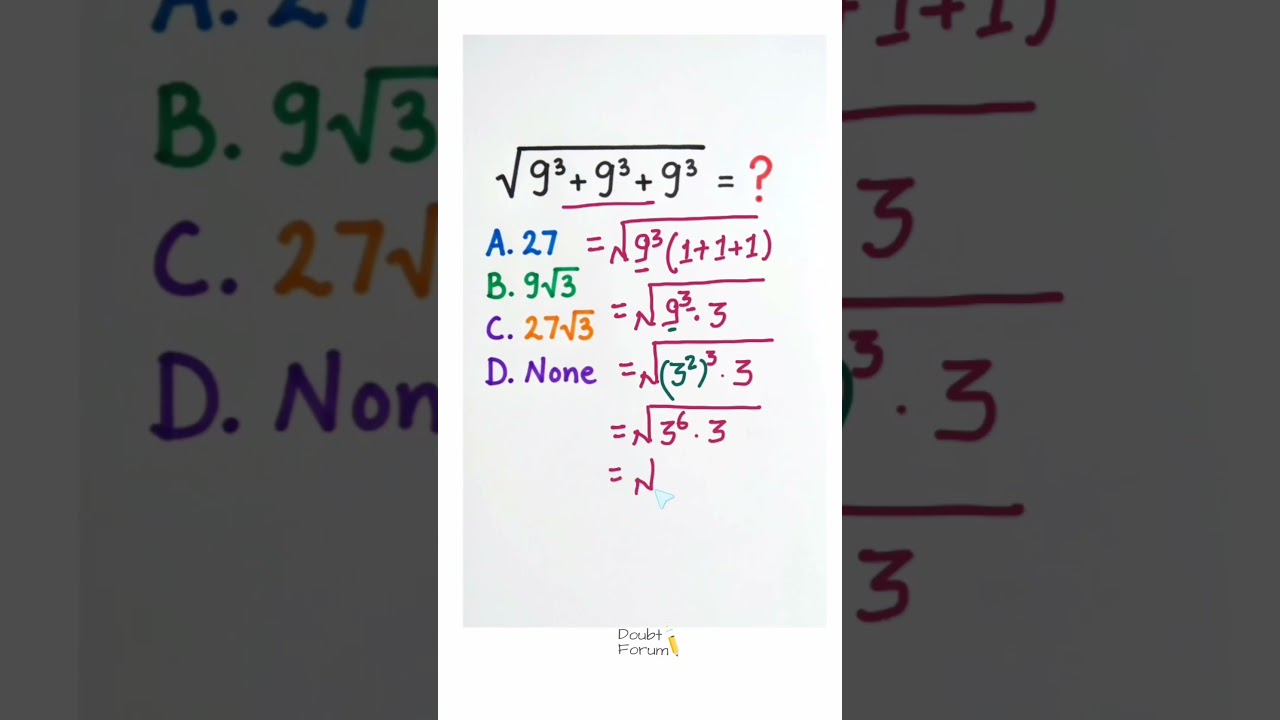 √(9³+9³+9³) = ?
A. 27
B. 9√3
C. 27√3
D. None
= √(9³(1+1+1))
= √(9³·3)
= √((3²)³·3)
= √(3⁶·3)
= √
Doubt
Forum